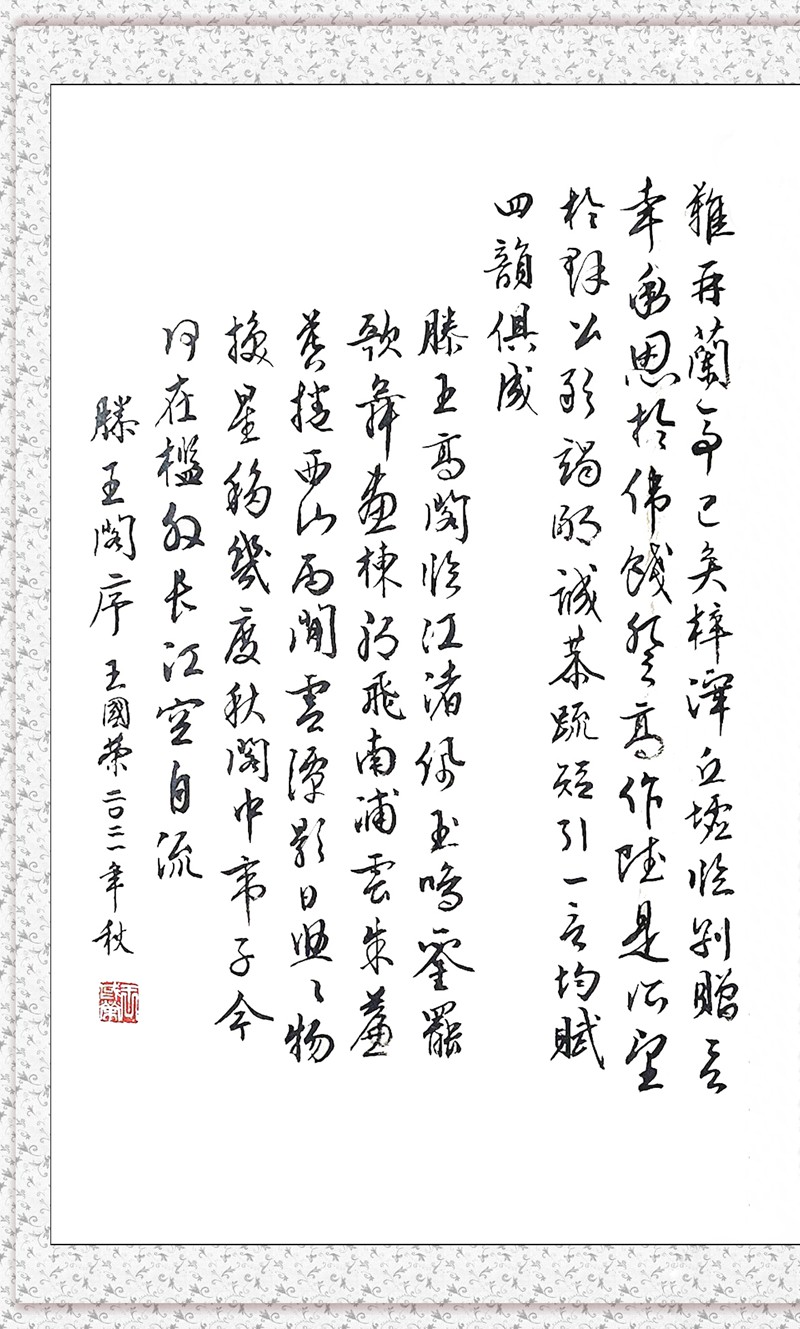 難再蘭亭已矣梓澤丘墟臨別贈言
幸承恩於偉餞登高作賦是所望
於群公敢竭鄙誠恭疏短引一言均賦
四韻俱成
滕王高閣臨江渚佩玉鳴鸞罷
歌舞畫棟朝飛南浦雲朱簾
暮捲西山雨閒雲潭影日悠々物
換星移幾度秋閣中帝子今
何在檻外長江空自流
滕王閣序 王國榮二〇二一年秋